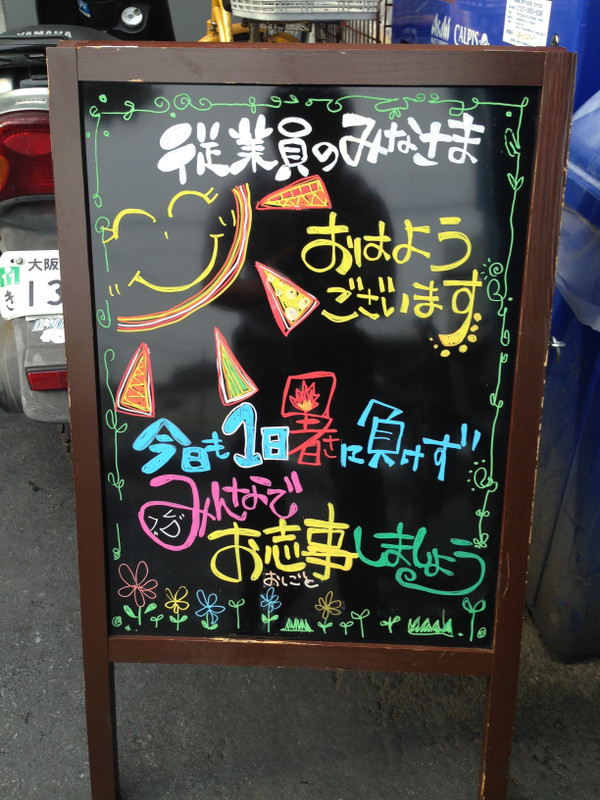 YAMAHA
Asahi
CALPIS
従業員のみなさま
おはよう
ございます
大阪
き 13
今日も1日暑さに負けず
みんなで
お志事しましょう
おしごと